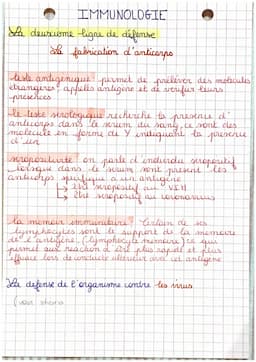 IMMUNOLOGIE
La deuxième ligne de défense
La fabrication d'anticorps
teste antigenique permet de prélever des molécules
étrangères, appelés antigène et de vérifier leurs
présences
le teste serologique recherche la présence d'
anticorps dans le serum du sang, ce sont des
molécule en forme de Y indiquant la présence
d'un
séropositivité on parle d'individu seropositif
lorsque dans le serum sont présent les
anticorps spécifique a un antigène
↳ être seropositif au VIH
↳ être seropositif au coronavirus
la memoir immunitaire Certain de ses
lymphocytes sont le support de la memoire
de l'antigène (lymphocyte memoire) ce qui
permet aux réaction d'être plus rapide et plus
efficace lors de contacte ultérieur avec cet antigène
La defense de l'organisme contre les virus
(voir schema